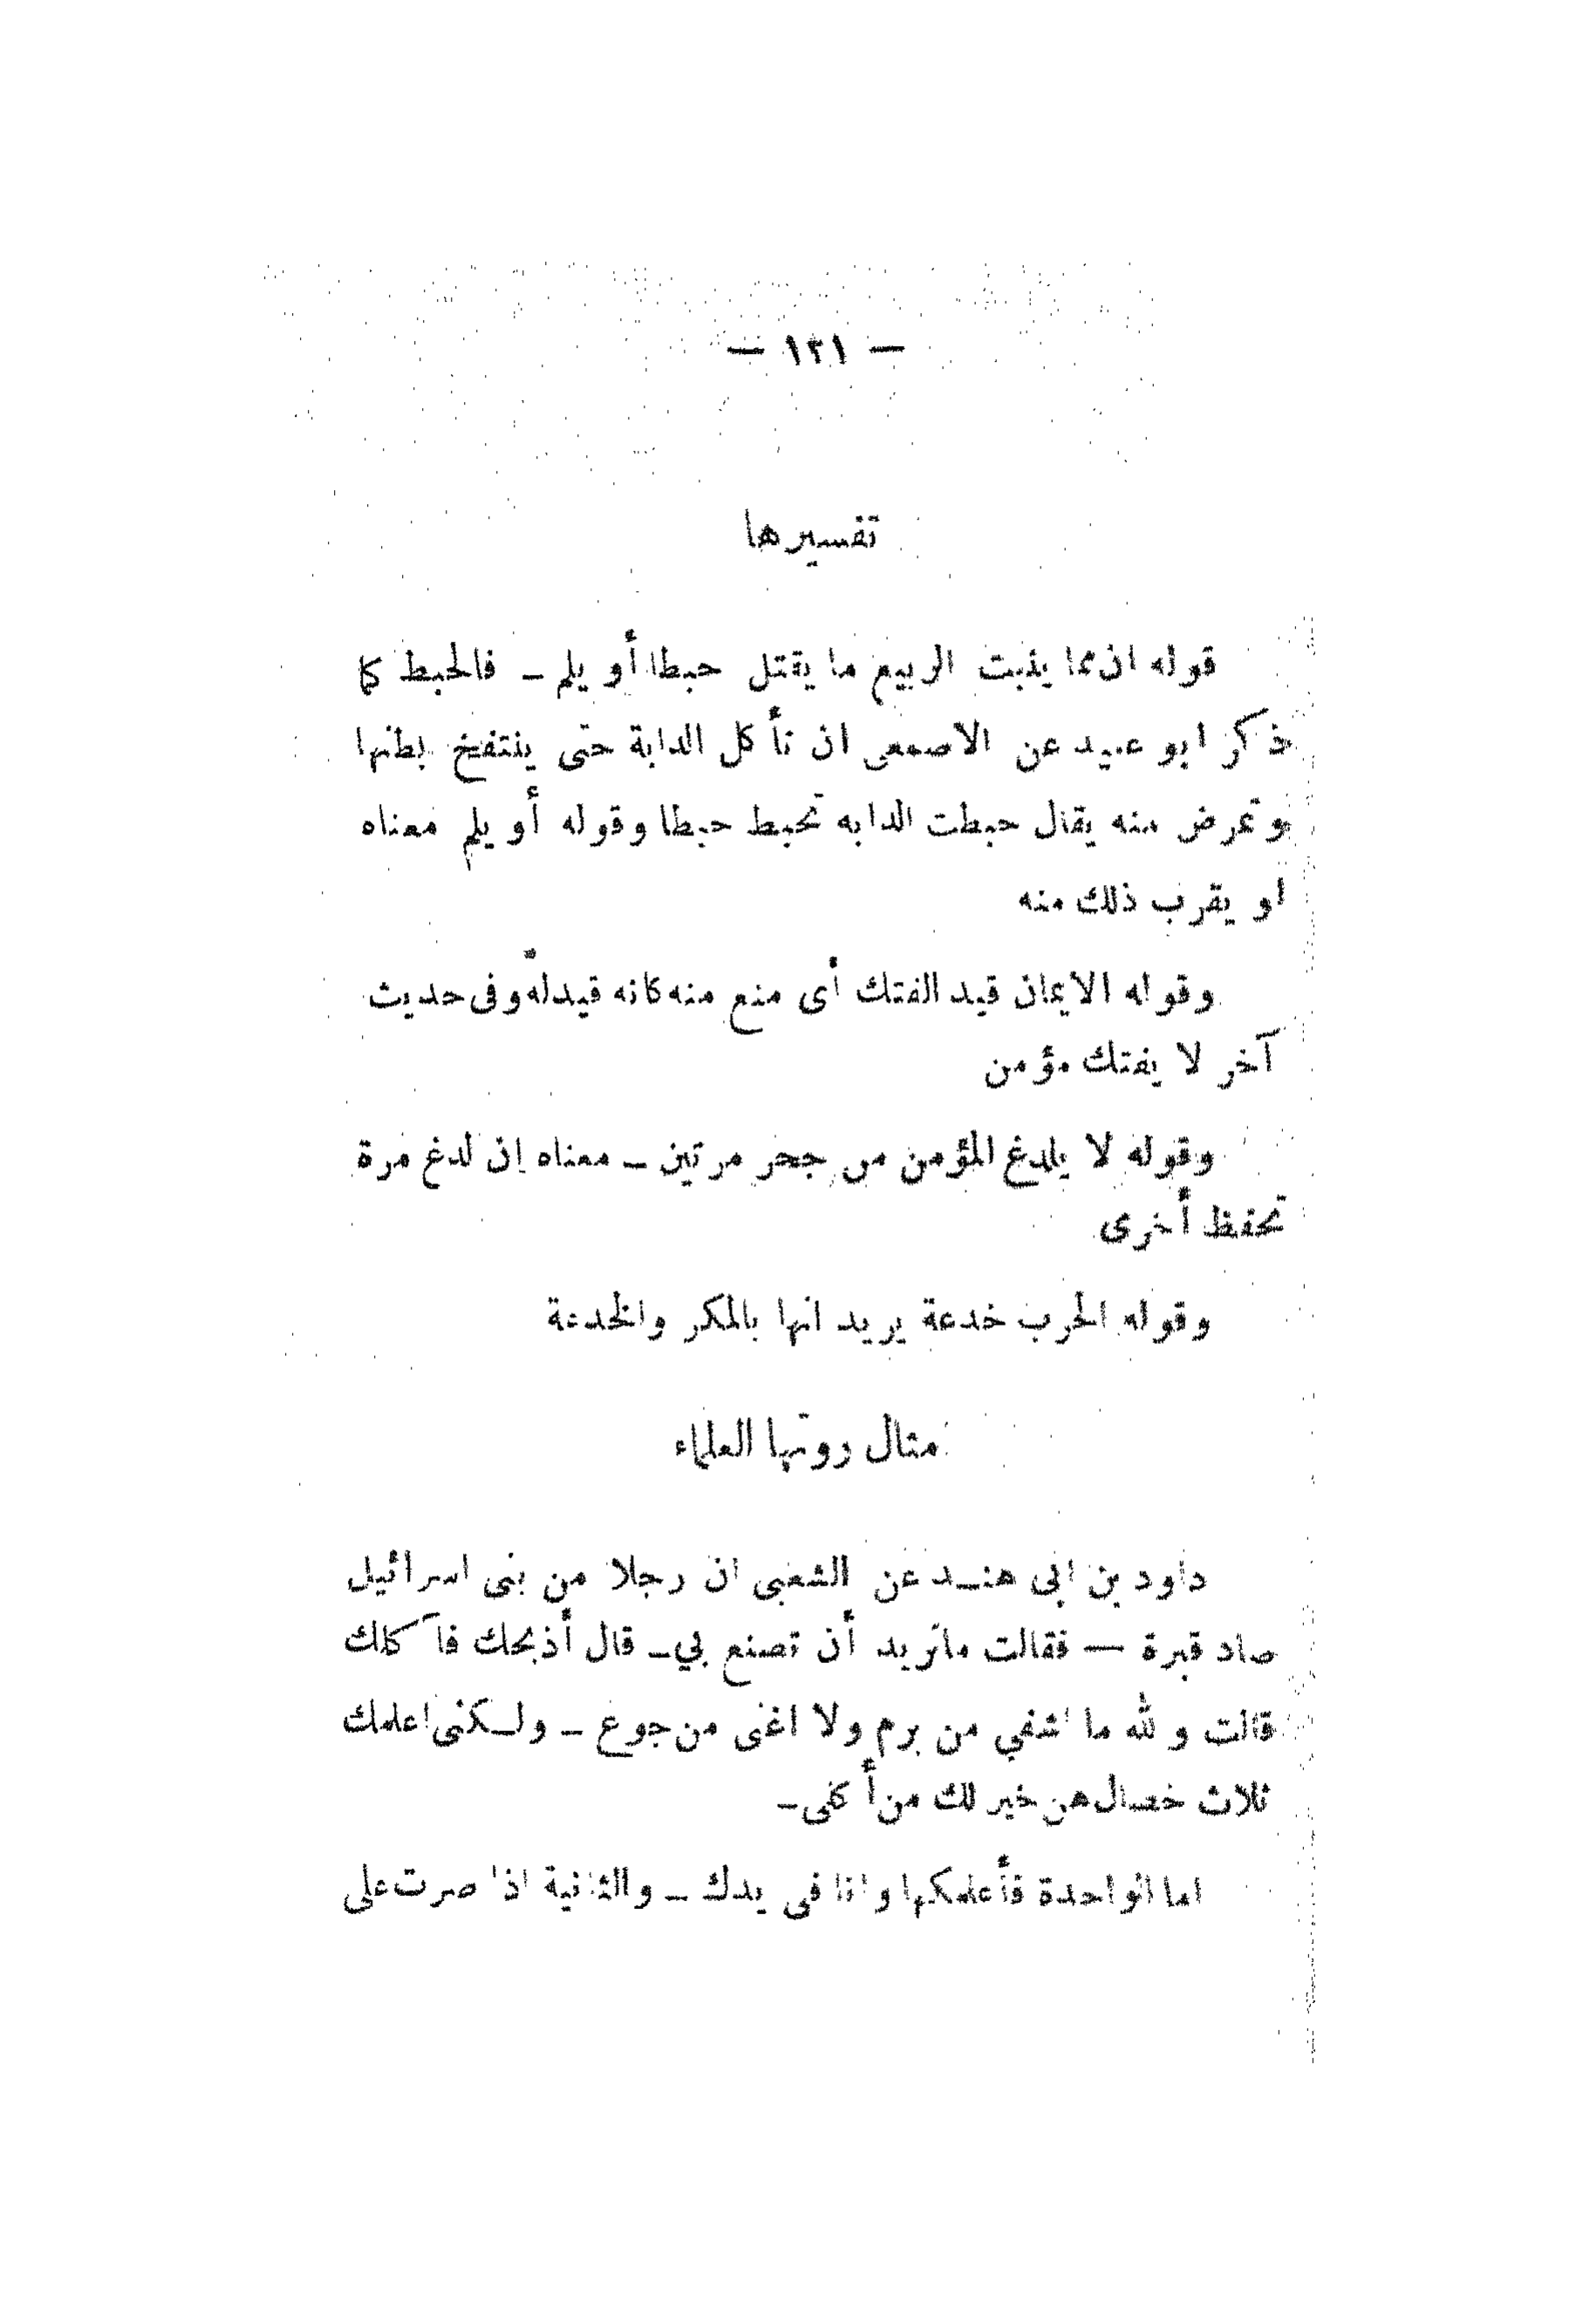 — ١٢١ —
تفسيرها
قوله ان مما ينبت الربيع ما يقتل حبطا أو يلم ـ فالحبط كما
ذكر ابو عبيد عن الاصمعى ان تأكل الدابة حتى ينتفخ بطنها
وتمرض منه يقال حبطت الدابه تحبط حبطا وقوله أو يلم معناه
او يقرب ذلك منه
وقوله الايمان قيد الفتك أى منع منه كانه قيدله وفى حديث
آخر لا يفتك مؤمن
وقوله لا يلدغ المؤمن من جحر مرتين ـ معناه إن لدغ مرة
تحفظ أخرى
وقوله الحرب خدعة يريد انها بالمكر والخدعة
مثال روتها العلماء
داود بن ابى هنـد عن الشعبى ان رجلا من بنى اسرائيل
صاد قبرة — فقالت ماتريد أن تصنع بي ـ قال أذبحك فآكلك
قالت والله ما اشفي من برم ولا اغنى من جوع ـ ولـكنى اعلمك
ثلاث خصال هن خير لك من أكلى ـ
اما الواحدة فأعلمكها وانا فى يدك ـ والثانية اذا صرت على